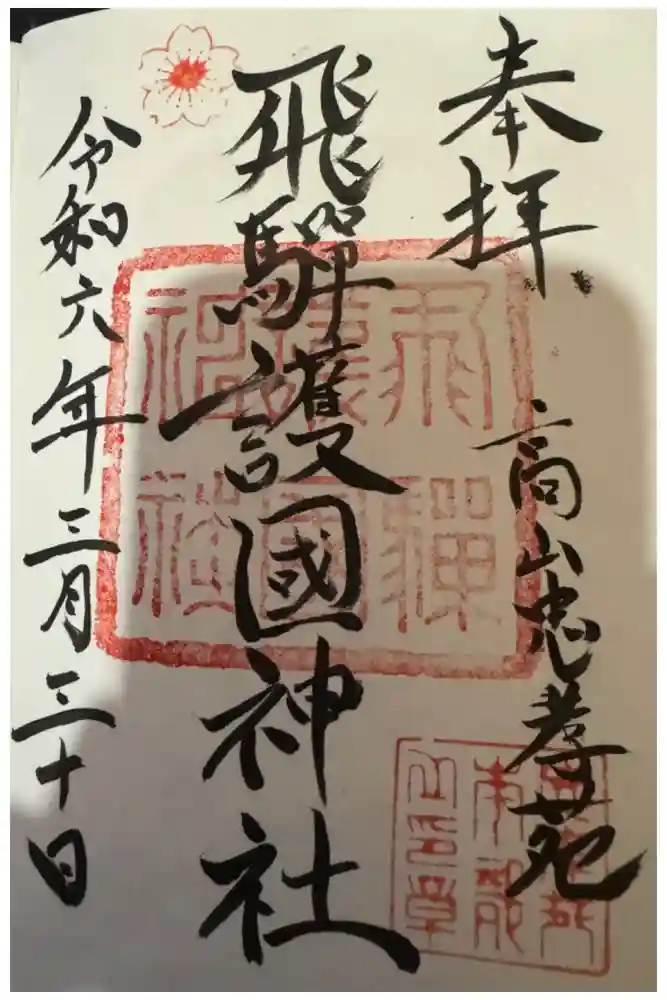 奉拝
高山忠孝苑
飛驒護國神社
令和六年三月三十日
飛驒護國神社